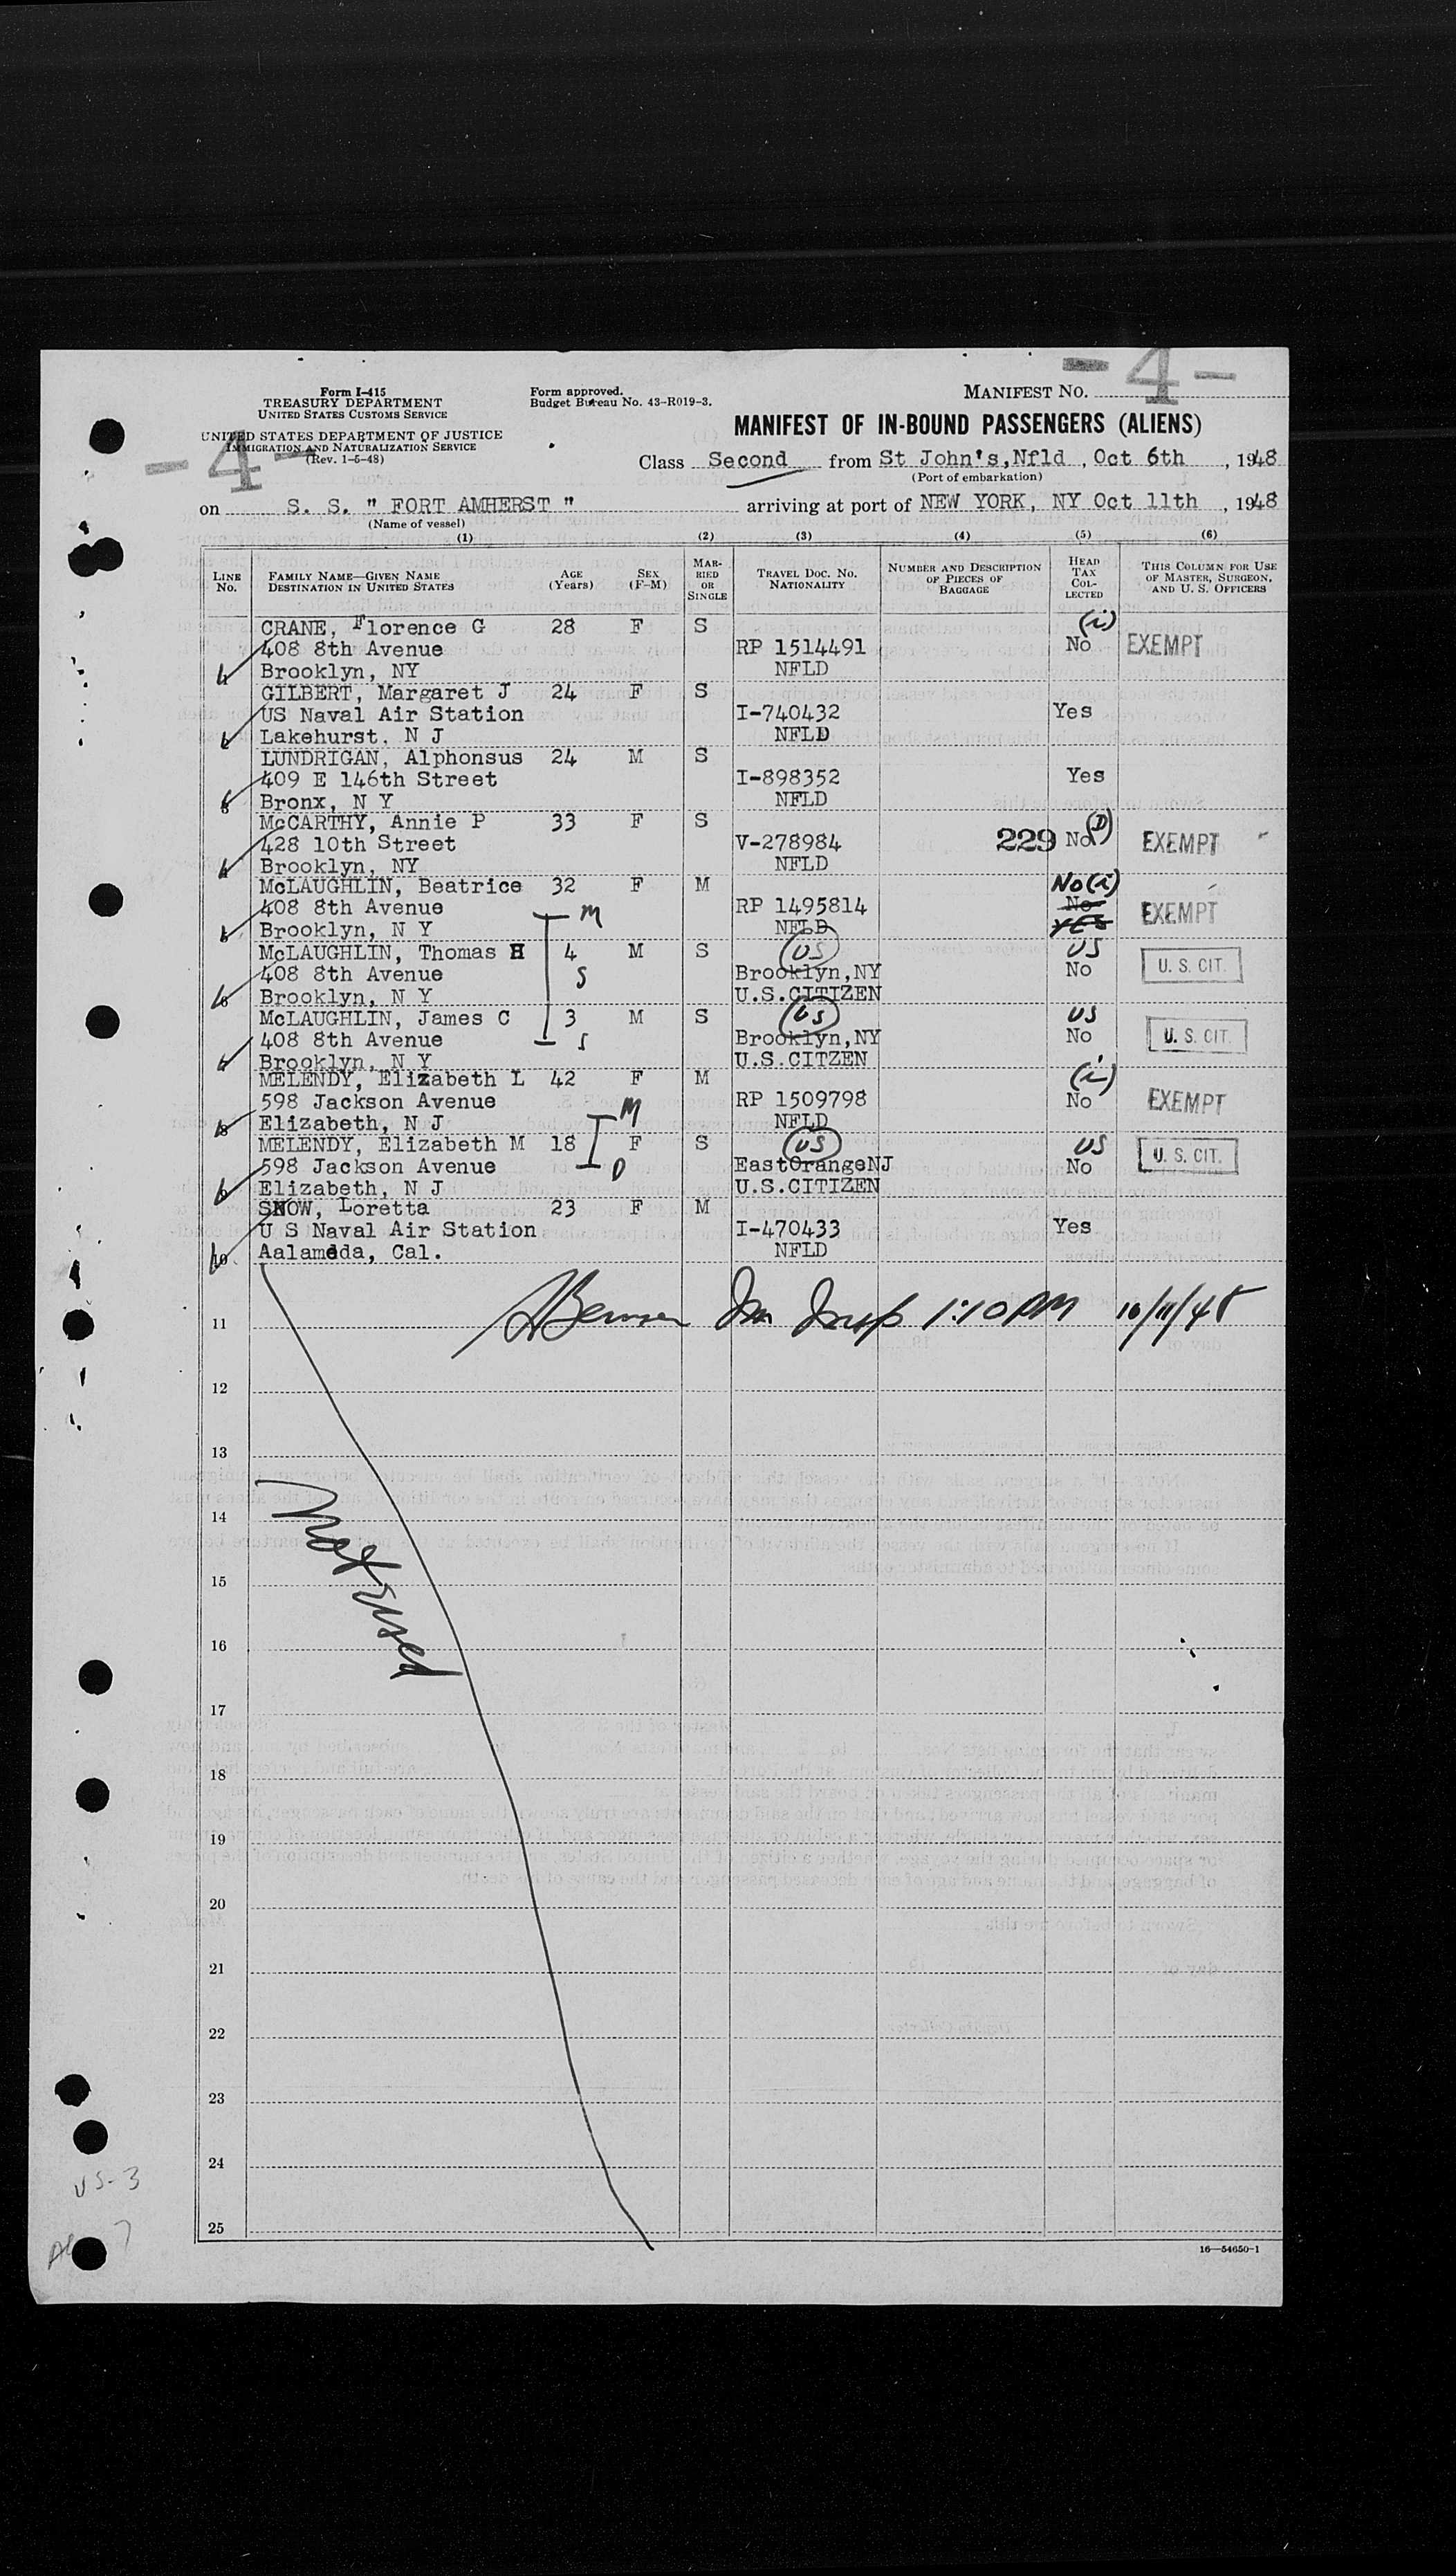 -4-
Form I-415
TREASURY DEPARTMENT
UNITED STATES CUSTOMS SERVICE
UNITED STATES DEPARTMENT OF JUSTICE
IMMIGRATION AND NATURALIZATION SERVICE
(Rev. 1-5-48)
-4-
Form approved.
Budget Bureau No. 43-R019-3.
MANIFEST NO.
MANIFEST OF IN-BOUND PASSENGERS (ALIENS)
Class Second from St John's,Nfld , Oct 6th , 1948
(Port of embarkation)
on S. S. " FORT AMHERST " arriving at port of NEW YORK, NY Oct 11th , 1948
(Name of vessel)
(1) (2) (3) (4) (5) (6)
LINE NO. FAMILY NAME—GIVEN NAME DESTINATION IN UNITED STATES AGE (Years) SEX (F-M) MARRIED OR SINGLE TRAVEL DOC. NO. NATIONALITY NUMBER AND DESCRIPTION OF PIECES OF BAGGAGE HEAD TAX COLLECTED THIS COLUMN FOR USE OF MASTER, SURGEON, AND U. S. OFFICERS
CRANE, Florence G 28 F S (i)
408 8th Avenue RP 1514491 No EXEMPT
Brooklyn, NY NFLD
GILBERT, Margaret J 24 F S
US Naval Air Station I-740432 Yes
Lakehurst, N J NFLD
LUNDRIGAN, Alphonsus 24 M S
409 E 146th Street I-898352 Yes
Bronx, N Y NFLD
McCARTHY, Annie P 33 F S (D)
428 10th Street V-278984 229 No EXEMPT
Brooklyn, NY NFLD
McLAUGHLIN, Beatrice 32 F M No(i)
408 8th Avenue M RP 1495814 No EXEMPT
Brooklyn, N Y NFLD YES
McLAUGHLIN, Thomas H 4 M S US US
408 8th Avenue S Brooklyn,NY No U. S. CIT.
6 Brooklyn, N Y U.S.CITIZEN
McLAUGHLIN, James C 3 M S US US
408 8th Avenue S Brooklyn,NY No U. S. CIT.
Brooklyn, N Y U.S.CITZEN
MELENDY, Elizabeth L 42 F M (i)
598 Jackson Avenue M RP 1509798 No EXEMPT
8 Elizabeth, N J NFLD
MELENDY, Elizabeth M 18 F S US US
598 Jackson Avenue D EastOrangeNJ No U. S. CIT.
9 Elizabeth, N J U.S.CITIZEN
SNOW, Loretta 23 F M
U S Naval Air Station I-470433 Yes
10 Aalameda, Cal. NFLD
Im Insp 1:10 PM 10/11/48
11
12
13
14
Not used
15
16
17
18
19
20
21
22
23
24
25
US-3
7
16—54650-1